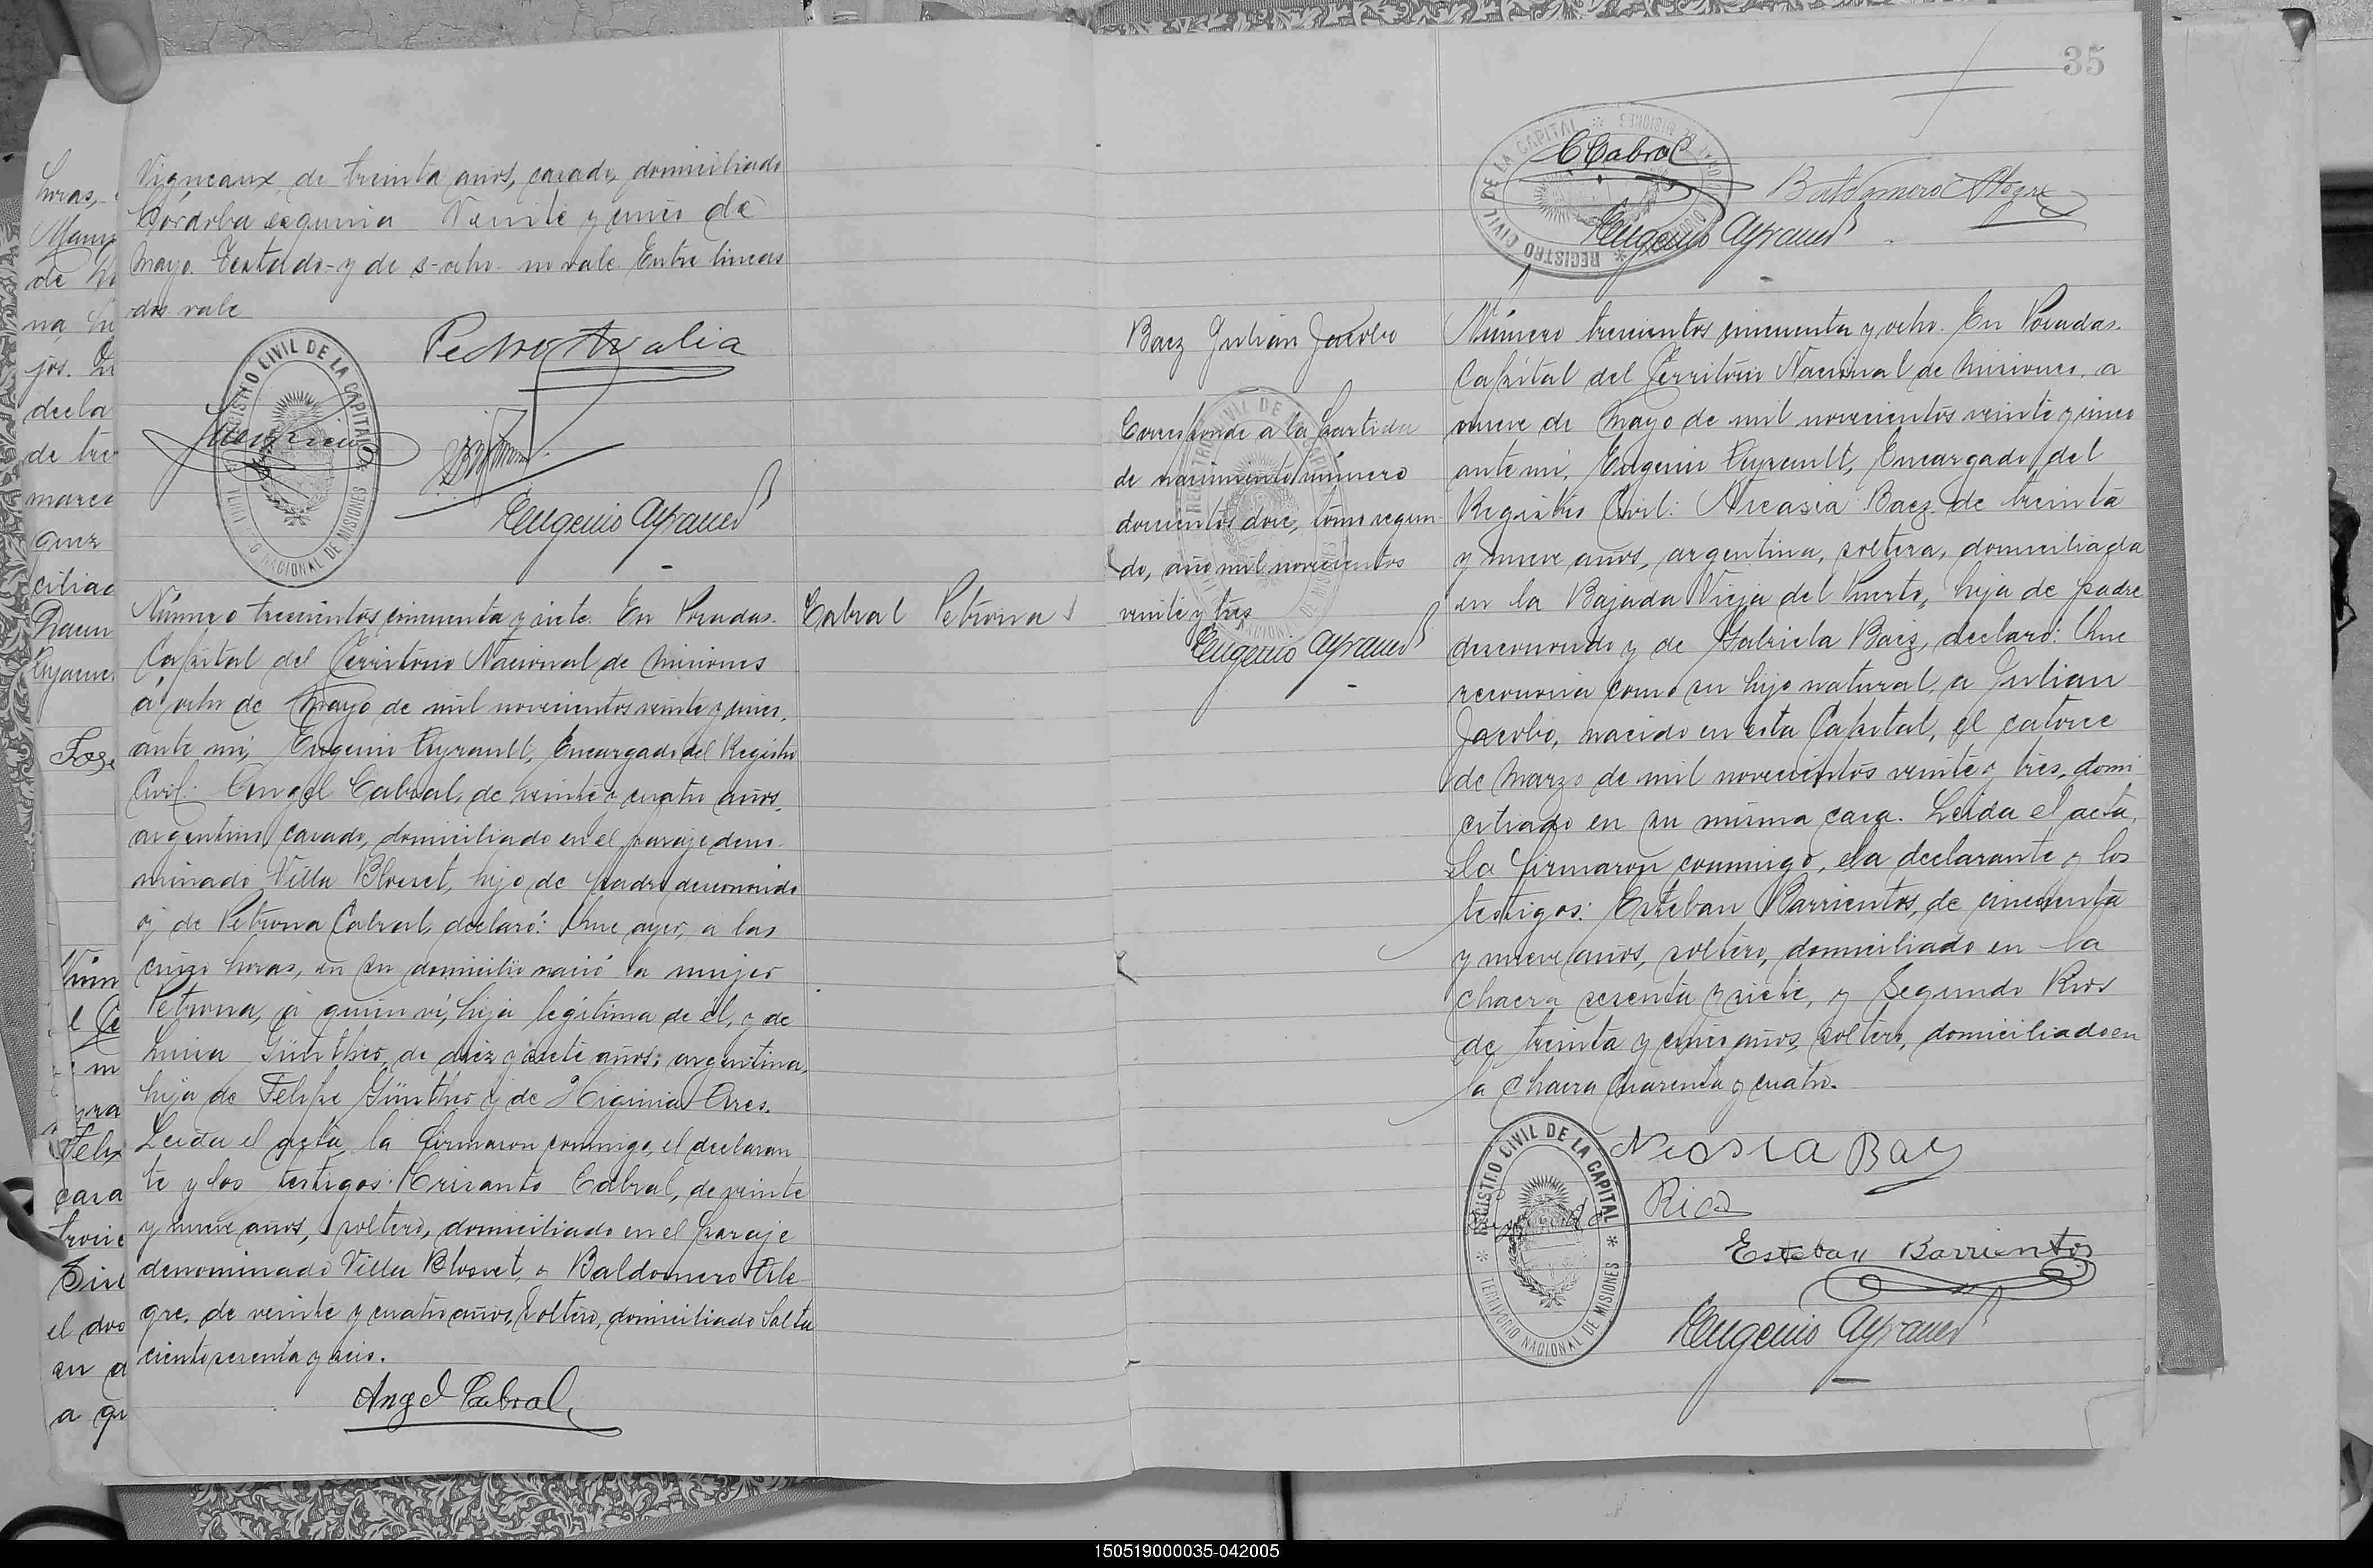 Vigneaux, de treinta años, casado, domiciliado
Córdoba esquina Veinte y cinco de
Mayo. Testado-y de s-ocho-no vale. Entre lineas
dos vale
Pedro Avalia
REGISTRO CIVIL DE LA CAPITAL
TERRITORIO NACIONAL DE MISIONES
Eugenio Ayrault
Número trescientos cincuenta y siete. En Posadas.
Capital del Territorio Nacional de Misiones
a ocho de Mayo de mil novecientos veinte y cinco,
ante mi, Eugenio Ayrault, Encargado del Registro
Civil: Angel Cabral, de veinte y cuatro años,
argentino, casado, domiciliado en el paraje deno-
minado Villa Blosset, hijo de padre desconocido
y de Petrona Cabral, declaró: Que ayer, a las
cinco horas, en su domicilio nació la mujer
Petrona, a quien vi, hija legítima de él, y de
Luisa Günther, de diez y siete años, argentina,
hija de Felipe Günther y de Higinia Ares.
Leida el acta, la firmaron conmigo, el declaran
te y los testigos: Crisanto Cabral, de veinte
y nueve años, soltero, domiciliado en el paraje
denominado Villa Blosset, y Baldomero Ale-
gre, de veinte y cuatro años, soltero, domiciliado Salta
ciento sesenta y seis.
Angel Cabral
Cabral Petrona
35
C Cabral
Baldomero Alegre
REGISTRO CIVIL DE LA CAPITAL
Eugenio Ayrault
Baez Julian Jacobo
Corresponde a la partida
de nacimiento número
doscientos doce, tomo segun-
do, año mil novecientos
veinte y tres
Eugenio Ayrault
Número trescientos cincuenta y ocho. En Posadas.
Capital del Territorio Nacional de Misiones, a
nueve de Mayo de mil novecientos veinte y cinco
ante mi, Eugenio Ayrault, Encargado del
Registro Civil: Nicasia Baez de treinta
y nueve años, argentina, soltera, domiciliada
en la Bajada Vieja del Puerto, hija de padre
desconocido y de Gabriela Baez, declaró: Que
reconocia como su hijo natural, a Julian
Jacobo, nacido en esta Capital, el catorce
de Marzo de mil novecientos veinte y tres, domi-
ciliado en su misma casa. Leida el acta,
la firmaron conmigo, la declarante y los
testigos: Esteban Barrientos, de cincuenta
y nueve años, soltero, domiciliado en la
chacra sesenta y siete, y Segundo Rios
de treinta y cinco años, soltero, domiciliado en
la chacra cuarenta y cuatro.
REGISTRO CIVIL DE LA CAPITAL
TERRITORIO NACIONAL DE MISIONES
Nicosia Baez
Segundo Rios
Esteban Barrientos
Eugenio Ayrault
150519000035-042005